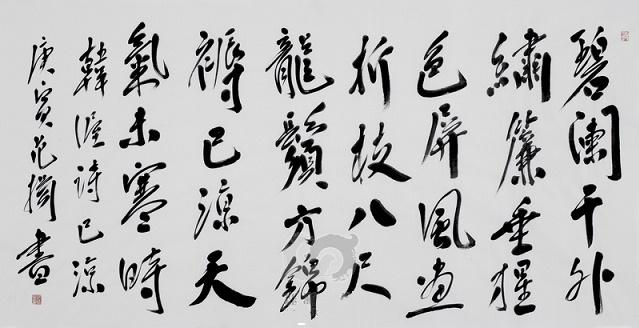 碧闌干外
繡簾垂猩
色屏風畫
折枝八尺
龍鬚方錦
褥已涼天
氣未寒時
韓偓詩已涼
庚寅范書